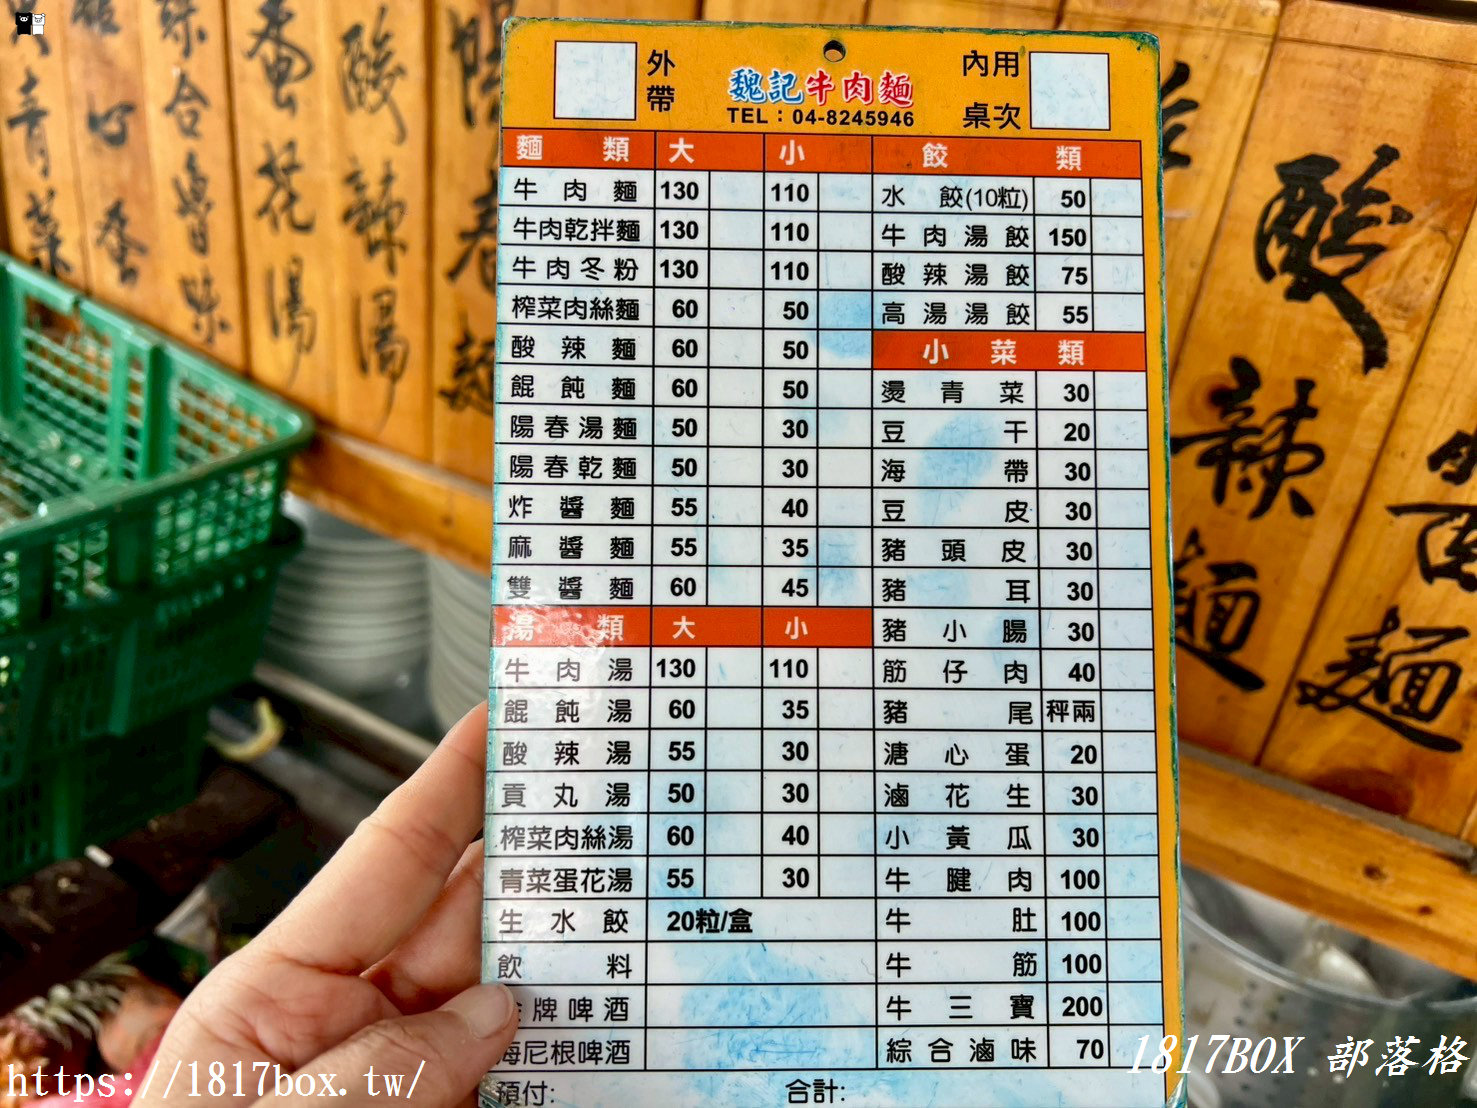 外帶
魏記牛肉麵
TEL：04-8245946
內用
桌次
麵類 大 小
牛肉麵 130 110
牛肉乾拌麵 130 110
牛肉冬粉 130 110
榨菜肉絲麵 60 50
酸辣麵 60 50
餛飩麵 60 50
陽春湯麵 50 30
陽春乾麵 50 30
炸醬麵 55 40
麻醬麵 55 35
雙醬麵 60 45
湯類 大 小
牛肉湯 130 110
餛飩湯 60 35
酸辣湯 55 30
貢丸湯 50 30
榨菜肉絲湯 60 40
青菜蛋花湯 55 30
生水餃 20粒/盒
飲料
牌啤酒
海尼根啤酒
預付:
合計:
餃類
水餃(10粒) 50
牛肉湯餃 150
酸辣湯餃 75
高湯湯餃 55
小菜類
燙青菜 30
豆干 20
海帶 30
豆皮 30
豬頭皮 30
豬耳 30
豬小腸 30
筋仔肉 40
豬尾 秤兩
溏心蛋 20
滷花生 30
小黃瓜 30
牛腱肉 100
牛肚 100
牛筋 100
牛三寶 200
綜合滷味 70
青菜
心蛋
綜合魯味
蛋花湯
酸辣湯
陽春麵
酸辣麵
醬麵
https://1817box.tw/
1817BOX 部落格